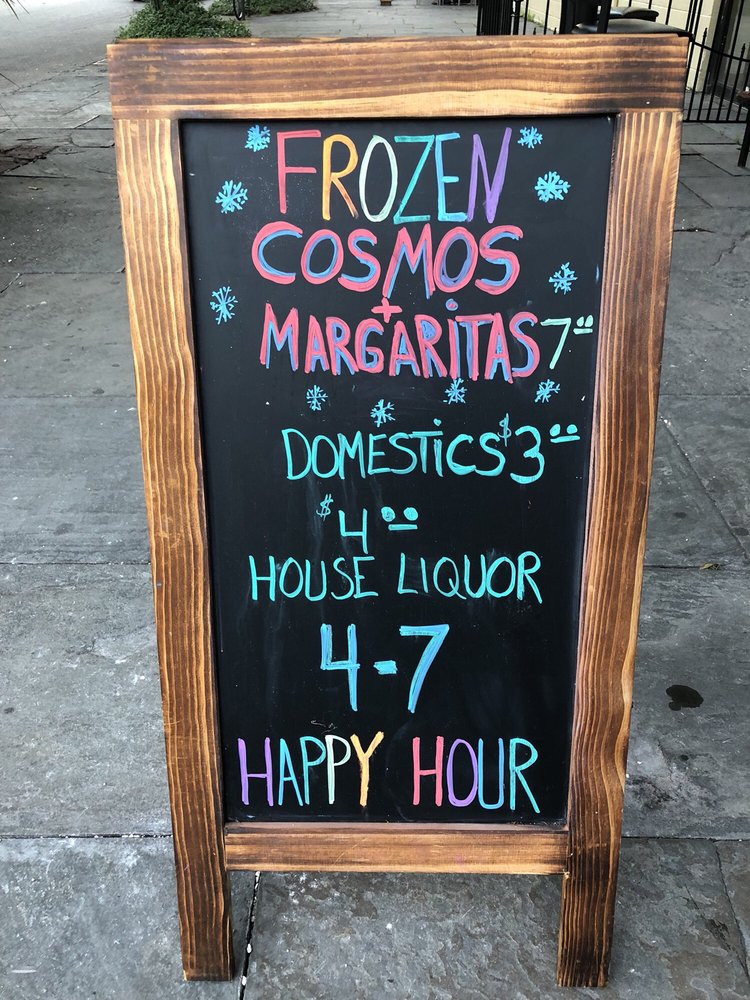 FROZEN
COSMOS
+
MARGARITAS 7⁰⁰
DOMESTICS $3⁰⁰
$4⁰⁰
HOUSE LIQUOR
4-7
HAPPY HOUR